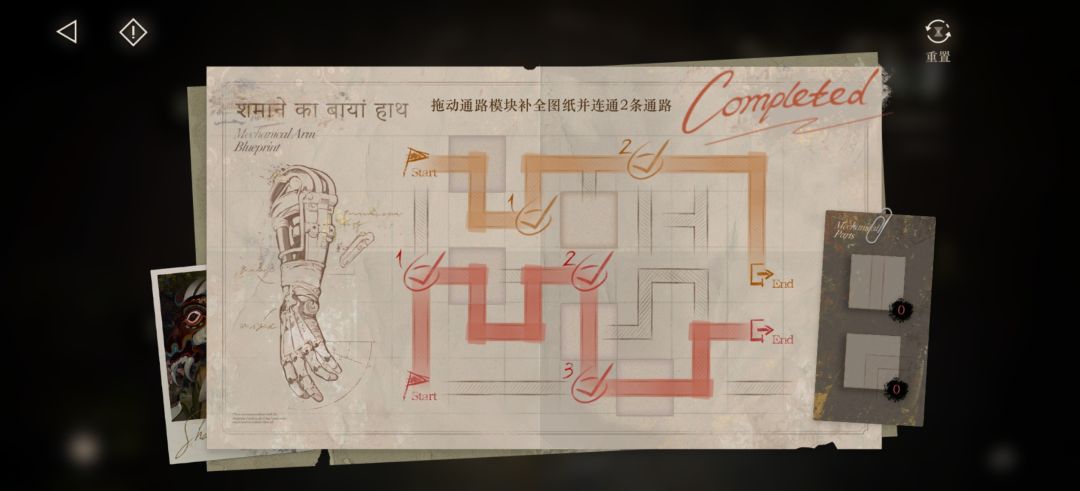 重置
शमाने का बायां हाथ
拖动通路模块补全图纸并连通2条通路
Completed
Mechanical Arm
Blueprint
Start
1
2
End
1
2
3
Start
End
Mechanical
Parts
0
0